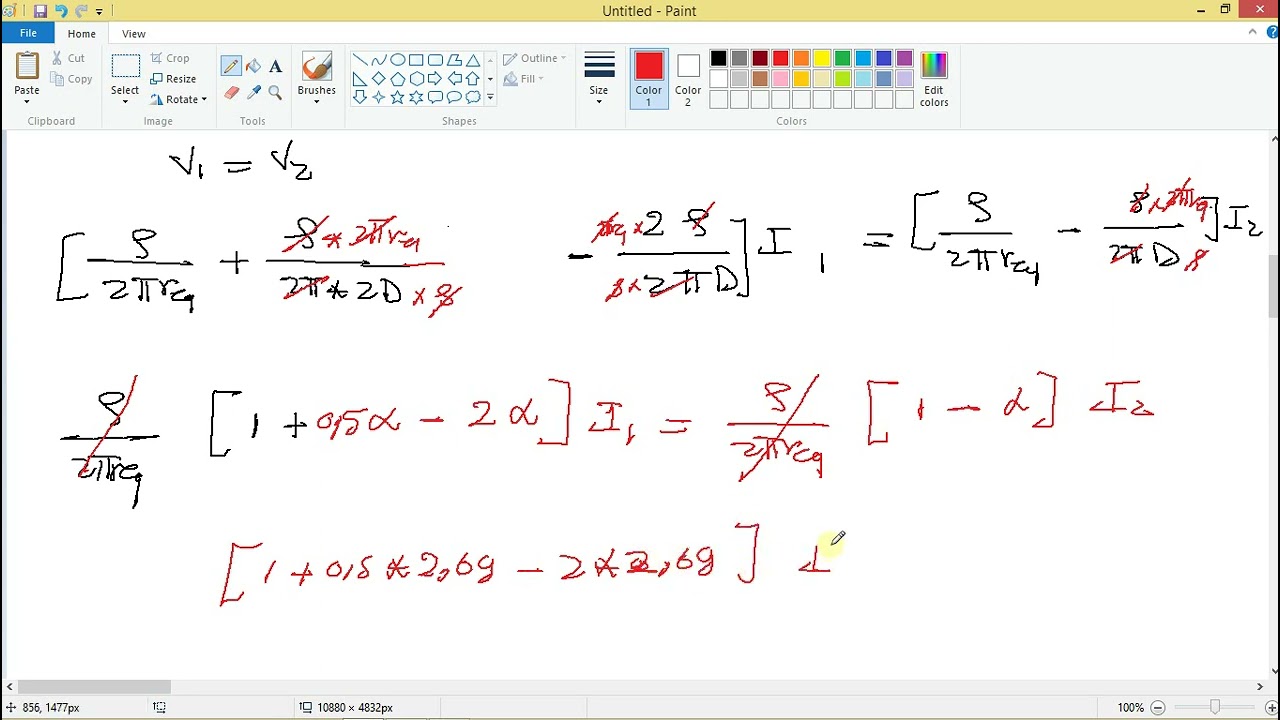 Untitled - Paint
File Home View
Paste Cut Copy Clipboard
Select Crop Resize Rotate Image
Tools
Brushes
Shapes Outline Fill
Size
Color 1 Color 2 Edit colors Colors
V₁ = V₂
[ρ/2πr_eq + ρ * 2πr_eq / 2π * 2D × ρ - r_eq × 2 ρ / ρ × 2πD] I₁ = [ρ/2πr_eq - ρ × 2πr_eq / 2πD ρ] I₂
ρ/2πr_eq [1 + 0,5α - 2α] I₁ = ρ/2πr_eq [1 - α] I₂
[1 + 0,5 * 2,69 - 2 * 2,69] I
856, 1477px 10880 × 4832px 100%